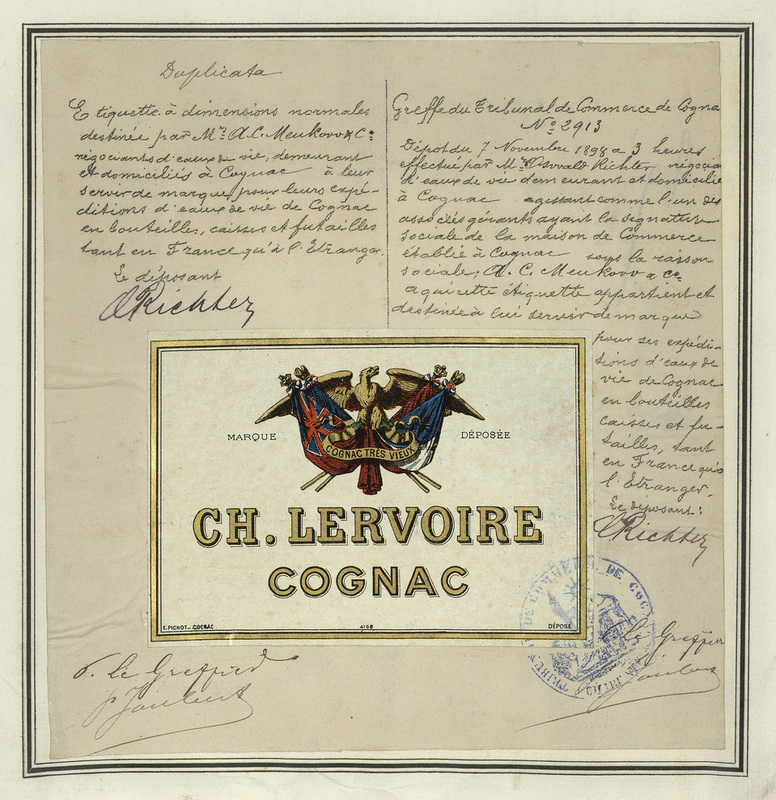 Duplicata
Etiquette à dimensions normales
destinée par Mrs A.C. Meukovv & Co
négociants d'eaux de vie, demeurant
et domiciliés à Cognac à leur
servir de marque pour leurs expé-
ditions d'eaux de vie de Cognac
en bouteilles, caisses et futailles
tant en France qu'à l'Etranger.
Le déposant
Richter
Greffe du Tribunal de Commerce de Cogna
No 2913
Dépôt du 7 Novembre 1898 à 3 heures
effectué par Mr Oswald Richter négocian
d'eaux de vie demeurant et domicilié
à Cognac agissant comme l'un des
associés gérants ayant la signature
sociale de la maison de Commerce
établie à Cognac sous la raison
sociale; A.C. Meukovv & Co
à qui cette étiquette appartient et
destinée à lui servir de marque
pour ses expédi-
tions d'eaux de
vie de Cognac
en bouteilles
caisses et fu-
tailles, tant
en France qu'à
l'Etranger.
Le déposant:
Richter
MARQUE DÉPOSÉE
COGNAC TRÈS VIEUX
CH. LERVOIRE
COGNAC
E. PICHOT _ COGNAC 4108 DÉPOSÉ
TRIBUNAL DE COMMERCE DE COGNAC
Le Greffier
Joubert
Le Greffier
Joubert